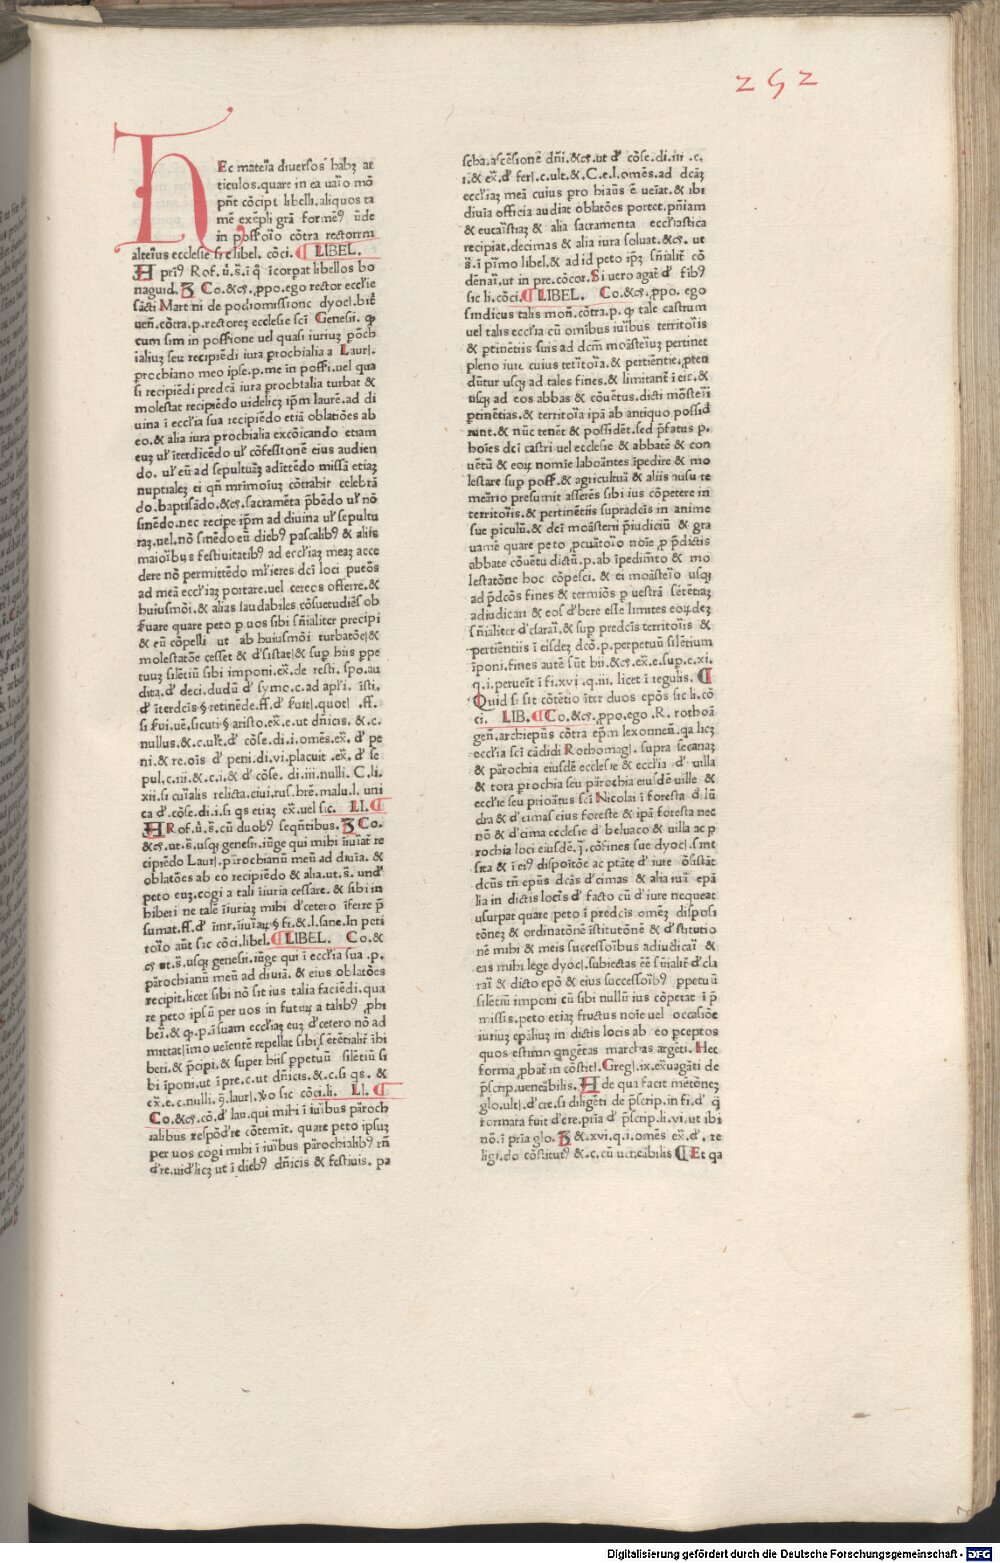 252
HEc materia diuersos habꝫ ar
ticulos.quare in ea uaīo mō
pn̄t cōcipi libelli.aliquos ta
mē exēpli grā formēꝰ ūde
in possoīo cōtra rectorem
alteīus ecclesie fit libel. cōci. ¶ LIBEL.
naguid. Co.&cꝫ.ꝓpo.ego rector eccl'ie
sācti Martini de podiomissionc dyocl.bit̄
ueñ.cōtra.p.rectoreꝫ ecclesie sc̄i Genesii. ꝙ
cum sim in possione uel quasi iuriuꝫ ꝓch
ialiuꝫ seu recipiēdi iura ꝓchialia a Laur̄.
ꝓchiano meo ipse.p.me in possī.uel qua
si recipiēdi predcā iura ꝓchialia turbat &
molestat recipiēdo uidelicꝫ ip̄m laurē.ad di
uina ī eccl'ia sua recipiēdo etiā oblatiōes ab
eo.& alia iura ꝓchialia excōicando etiam
euꝫ ul' īterdicēdo ul' cōfessionē eius audien
do. ul' eū ad sepulturāꝫ adīttēdo missā etiaꝫ
nuptialeꝫ ei qn̄ mr̄imoīuꝫ cōtrahit celebrā
do.baptisādo.&cꝫ.sacramēta p̄bēdo ul' nō
sinēdo.nec recipe ip̄m ad diuina ul' sepultu
raꝫ.uel.nō sinēdo eū diebꝰ pascalibꝰ & aliis
maioībus festiuitatibꝰ ad eccl'iaꝫ meaꝫ acce
dere nō permittēdo ml'ieres dc̄i loci pueōs
ad meā eccl'iaꝫ portare.uel cereos offerre.&
huiusmōi.& alias laudabiles cōsuetudiēs ob
fuare quare peto p uos sibi sn̄ialiter precipi
& eū cōpelli ut ab huiusmōi turbatōe&
molestatōe cesset & d'sistat& suꝑ hiis ppe
tuuꝫ silētiū sibi imponi.ex̄.de resti. spo.au
dita.d' deci.dudū d' symo.c.ad apl'i. īsti.
nullus.& c.ul't.d' cōse.di.i.omēs.ex̄.d' pe
ni.& re.oīs d' peni.di.vi.placuit .ex̄.d' se
pul.c.iii.& c.i.& d' cōse. di.iii.nulli. C.li.
xii.si cuīalis relicta.ciui.rus.brē.malu.l. uni
ca d'.cōse.di.i.si qs etiaꝫ ex̄.uel sic. LI.¶
&cꝫ.ut.s̄.usqꝫ genesi.iūge qui mihi īiuīat̄ re
cipiēdo Laur̄.pārochianū meū ad diuīa. &
oblatōes ab eo recipiēdo & alia.ut.s̄. und'
peto euꝫ.cogi a tali īiuria cessare. & sibi in
hiberi ne talē īiuriaꝫ mihi d'cetero īferre p̄
toīo aūt sic cōci.libel.¶LIBEL. Co.&
cꝫ ut.s̄.usqꝫ genesi.iūge qui ī eccl'ia sua .p.
pārochianū meū ad diuīā. & eius oblatōes
recipit.licet sibi nō sit ius talia faciēdi.qua
re peto ipsū per uos in futuꝝ a talibꝰ ꝓhi
beī.& ꝙ.p.ī suam eccl'iaꝫ euꝫ d'cetero nō ad
mittat īmo ueientē repellat sibi sētētialit̄ īhi
beri.& p̄cipi.& super hiis ꝑpetuū silētiū si
bi īponi.ut ī pre.c.ut dn̄icis.& c.si qs. &
Co.&cꝫ.cō.d' lau.qui mihi ī iuībus pāroch
ialibus respōd're cōtemāt. quare peto ipsuꝫ
per uos cogi mihi ī iuībus pārochialibꝰ rn̄
d're.uid'licꝫ ut ī diebꝰ dn̄icis & festiuis. pa
scha.ascēsionē dn̄i.&cꝫ.ut d' cōse.di.iii .c.
i.& ex̄.d' fer̄.c.ult.& C.e.l.omēs.ad dcāꝫ
eccl'iaꝫ meā cuius pro hiaūs ē ueīat.& ibi
diuīa officia audiat oblatōes portet.pn̄iam
& eucaīstiaꝫ & alia sacramenta eccl'iastica
recipiat.decimas & alia iura soluat.&cꝫ. ut
s̄.ī pīmo libel.& ad id peto ipꝫ sn̄ialit̄ cō
dēnaī.ut in pre.cōcor.Si uero agat̄ d' fībꝰ
sic li.cōci.¶LIBEL. Co.&cꝫ.ꝓpo. ego
sindicus talis moñ.cōtra.p. ꝙ tale castrum
uel talis eccl'ia cū omībus iuībus territoīis
& ꝑtinētiis suis ad dcm̄ moāsteīuꝫ pertinet
pleno iure cuius tet̄itoīa.& pertiēntie.ꝓten
dūtur usqꝫ ad tales fines.& limitant̄ ī eit.&
usqꝫ ad eos abbas & cōuētus.dicti mōsteīī
ꝑtinētias.& territoīa ipā ab antiquo possid
runt.& nūc tenēt & possidēt.sed p̄fatus p.
hoīes dc̄i castri uel ecclesie & abbatē & con
uētū & eoꝝ nomīe laboāntes īpedire & mo
lestare sup poss.& agricultuā & aliis ausu te
meārio presumit asserēs sibi ius cōpetere in
territoīis.& pertinētiis supradcīs in anime
sue piculū.& dc̄i moāsterii p̄iudiciū & gra
uamē quare peto ꝓcuātoīo noīe ꝓ p̄dictis
abbate cōuētu dictū.p.ab īpedim̄to & mo
lestatōne hoc cōpesci.& ei moāsteīo usqꝫ
ad p̄dcōs fines & termiōs p uestrā sētētiaꝫ
adiudicari & eos d'bere esse limites eoꝝdeꝫ
sn̄ialiter d'claraī.& suꝑ predcīs territoīis &
pertiēntiis ī eisdeꝫ dcō.p.perpetuū silētium
īponi.fines autē sūt hii.&cꝫ.ex̄.e.sup.e.xi.
q.i.perueīt ī fi.xvi .q.iii. licet ī regulis. ¶
Quid si sit cōtētio īter duos epōs sic li.cō
ci. LIB.¶Co.&cꝫ.ꝓpo.ego .R. rothoā
geñ.archiepūs cōtra ep̄m lexonneñ.qa licꝫ
eccl'ia sc̄i cādidi Rothomagi. supra secanaꝫ
& pārochia eiusdē ecclesie & eccl'ia d' uilla
& tota ꝓchia seu pārochia eiusdē uille &
eccl'ie seu prioātus sc̄i Nicolai ī foresta d' lū
dra & d'cimas eius foreste & ipā foresta nec
nō & d'cima ecclesie d' beluaco & uilla ac p
rochia loci eiusdē.ī.cōfines sue dyocl.sint
sita & ī eiꝰ dispoītōe ac ptāte d' iure ōsistāt
dcūs tn̄ epūs dcās d'cimas & alia iuā epā
lia in dictis locīs d' facto cū d'iure nequeat
usurpat quare peto ī predcīs omēꝫ disposi
tōneꝫ & ordinatōnē īstitutōnē & d'stitutio
nē mihi & meis successoībus adiudicaī &
eas mihi lege dyocl.subiectas eē sn̄ialit̄ d'cla
raī & dicto epō & eius successoībꝰ ppetuū
silētiū imponi cū sibi nullū ius cōpetat ī p̄
missis.peto etiaꝫ fructus noīe uel occasiōe
iuriuꝫ ep̄aliuꝫ in dictis locis ab eo ꝑceptos
quos estimo qngētas marchas argēti. Hec
forma ꝓbat̄ in cōstitl. Gregl.ix.ex̄uagāti de
p̄scrip.uenēabilis. de qua facit mētōneꝫ
glo.ult.d'cre.si diligēti de p̄scrip.in fi.d' q̄
formata fuit d'cre.pīa d' p̄scrip.li.vi.ut ibi
nō.ī pīia glo. & .xvi.q.i.omēs ex̄.d'. re
ligi.do cōstitutꝰ &.c.cū ueneābilis ¶Et qa
Digitalisierung gefördert durch die Deutsche Forschungsgemeinschaft - DFG